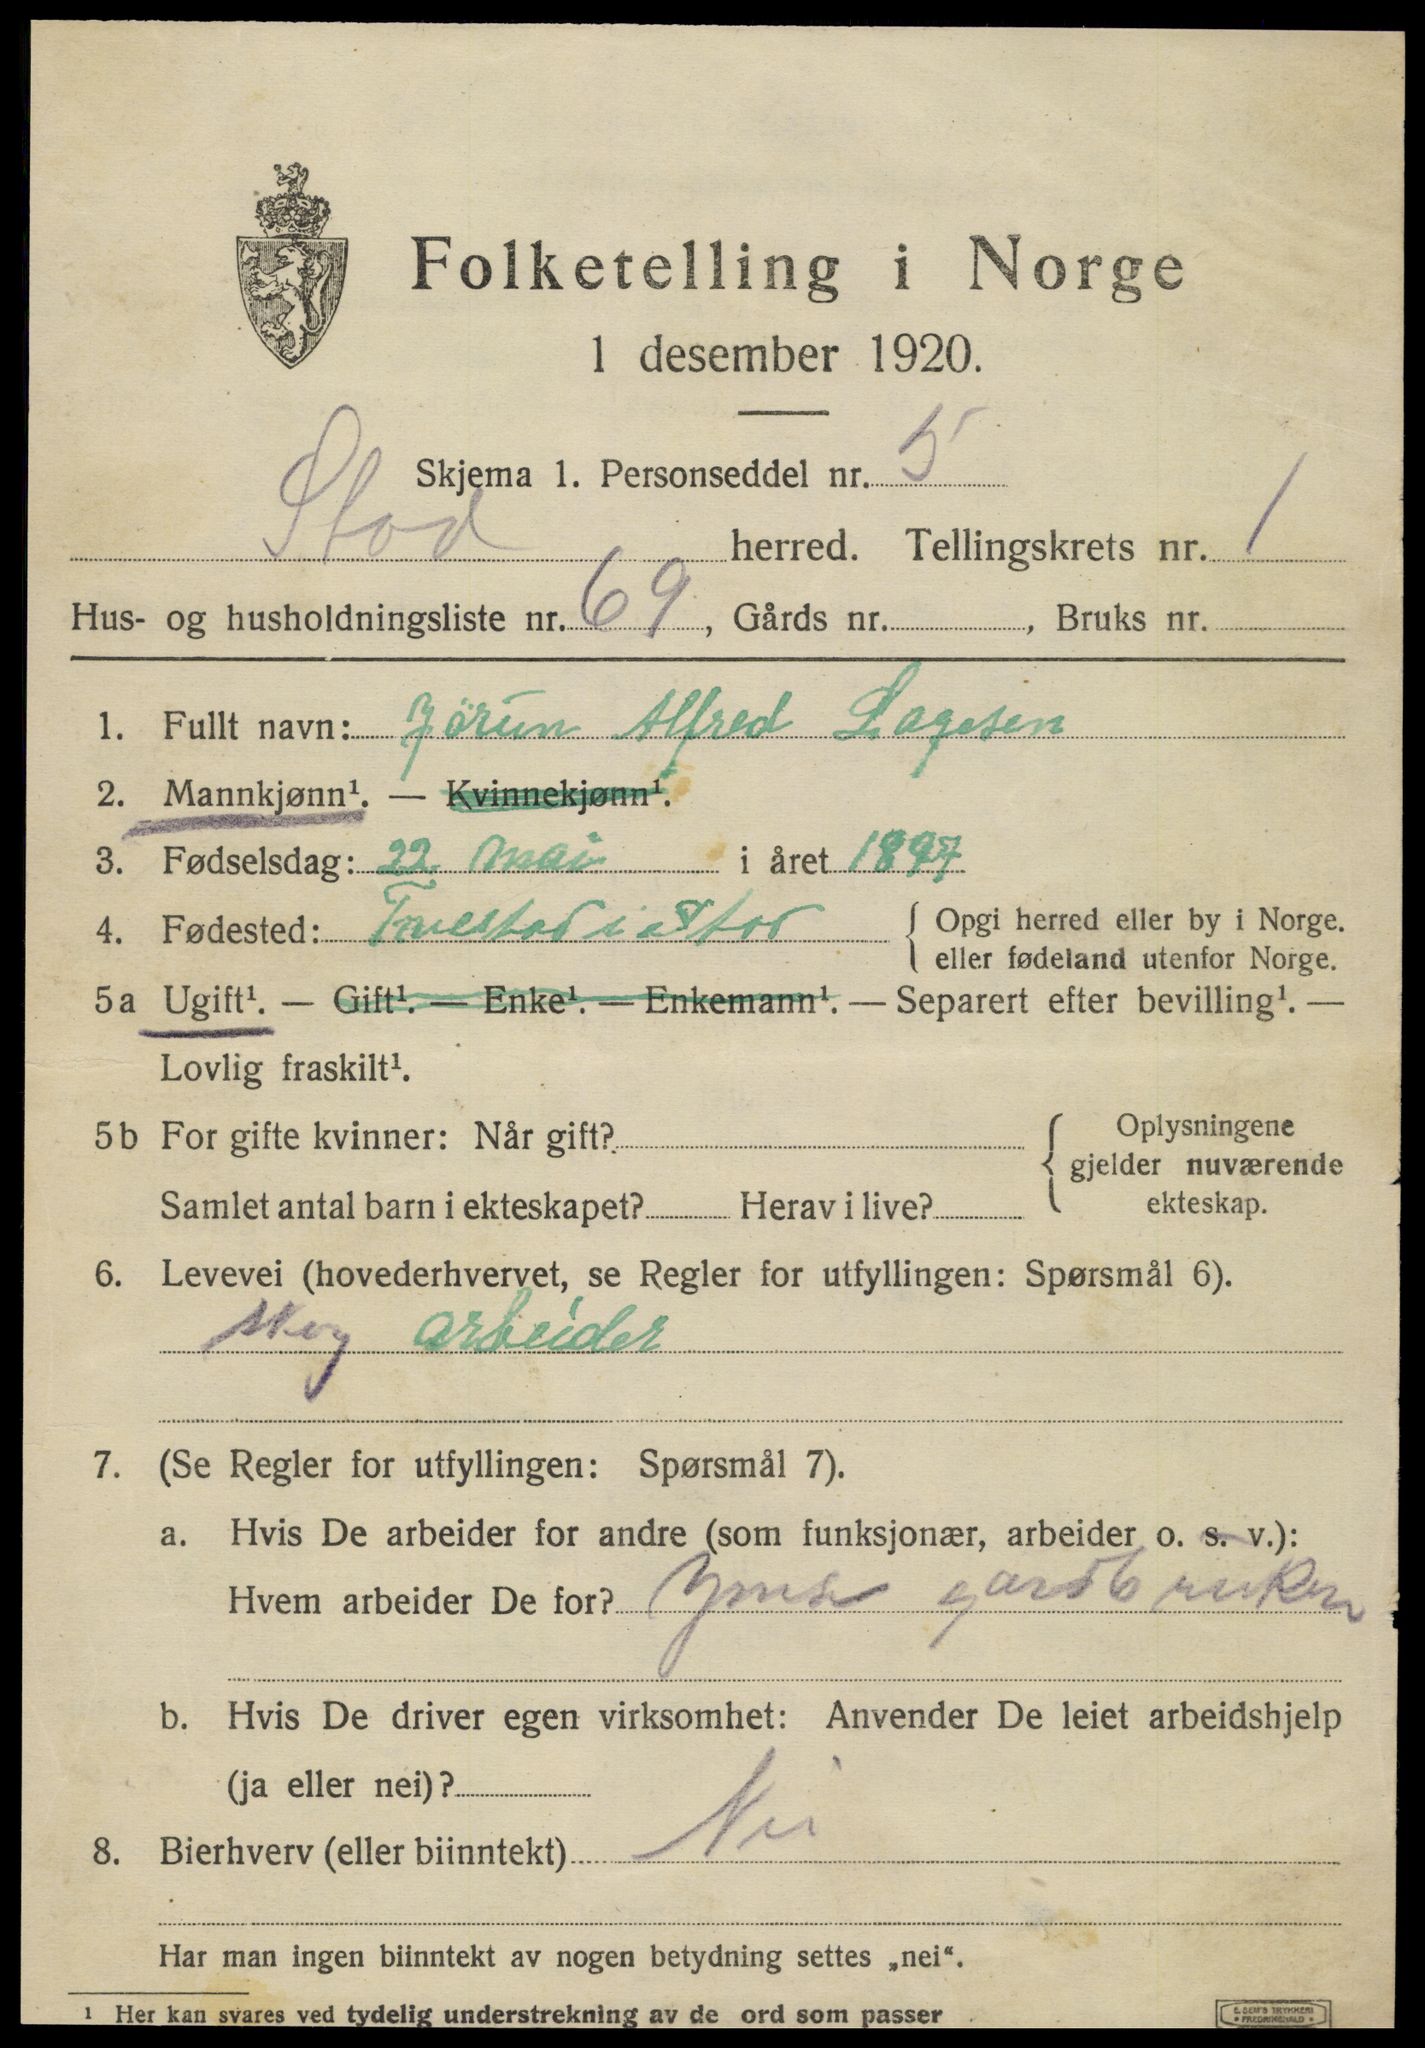 Folketelling i Norge
1 desember 1920.
Skjema 1. Personseddel nr. 5
Stod herred. Tellingskrets nr. 1
Hus- og husholdningsliste nr. 69, Gårds nr. , Bruks nr.
1. Fullt navn: Jörun Alfred Lagesen
2. Mannkjønn¹. — Kvinnekjønn¹.
3. Fødselsdag: 22 mai i året 1897
4. Fødested: i Stod { Opgi herred eller by i Norge.
eller fødeland utenfor Norge.
5a Ugift¹. — Gift¹. — Enke¹. — Enkemann¹. — Separert efter bevilling¹. —
Lovlig fraskilt¹.
5b For gifte kvinner: Når gift? { Oplysningene
gjelder nuværende
Samlet antal barn i ekteskapet? Herav i live? ekteskap.
6. Levevei (hovederhvervet, se Regler for utfyllingen: Spørsmål 6).
skog arbeider
7. (Se Regler for utfyllingen: Spørsmål 7).
a. Hvis De arbeider for andre (som funksjonær, arbeider o. s. v.):
Hvem arbeider De for? Ymse gardbruker
b. Hvis De driver egen virksomhet: Anvender De leiet arbeidshjelp
(ja eller nei)?
8. Bierhverv (eller biinntekt) Nei
Har man ingen biinntekt av nogen betydning settes „nei“.
¹ Her kan svares ved tydelig understrekning av de ord som passer
E. SEM'S TRYKKERI
FREDRIKSHALD